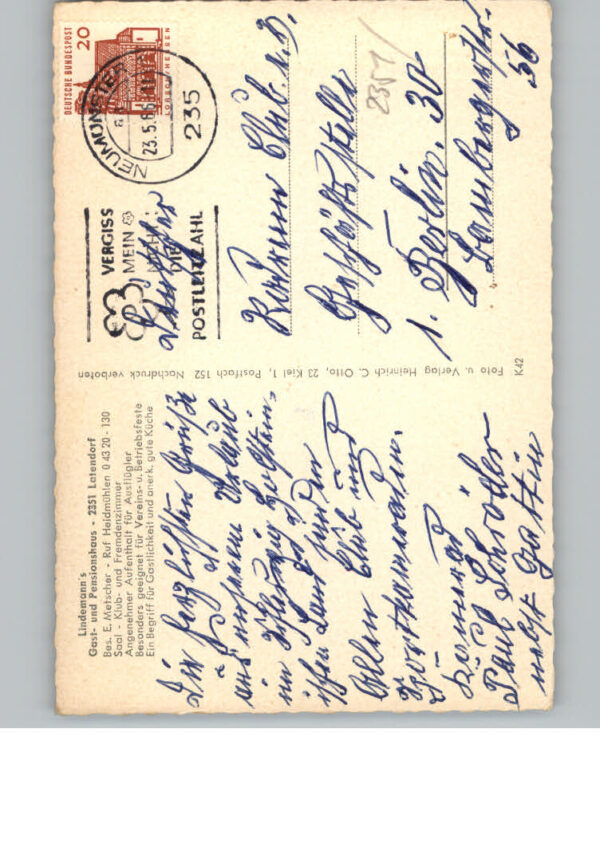 Lindemann's
Gast- und Pensionshaus - 2351 Latendorf
Bes. E. Metscher - Ruf Heidmühlen 0 43 20 - 130
Saal - Klub- und Fremdenzimmer
Angenehmer Aufenthalt für Ausflügler
Besonders geeignet für Vereins- u. Betriebsfeste
Ein Begriff für Gastlichkeit und anerk. gute Küche
Die herzlichsten Grüße
aus unserem Urlaub
im Schleswig Holstein-
ischen Land
Allen Club und
Sportkameraden.
Kamerad
Paul Schröder
nebst Gattin
Foto u. Verlag Heinrich C. Otto, 23 Kiel 1, Postfach 152 Nachdruck verboten
K42
DEUTSCHE BUNDESPOST
20
LORSCH/HESSEN
NEUMÜNSTER
23.5.66
235
VERGISS
MEIN
NICHT
DIE
POSTLEITZAHL
2351
Club
Geschäftsstelle
1. Berlin. 30
56